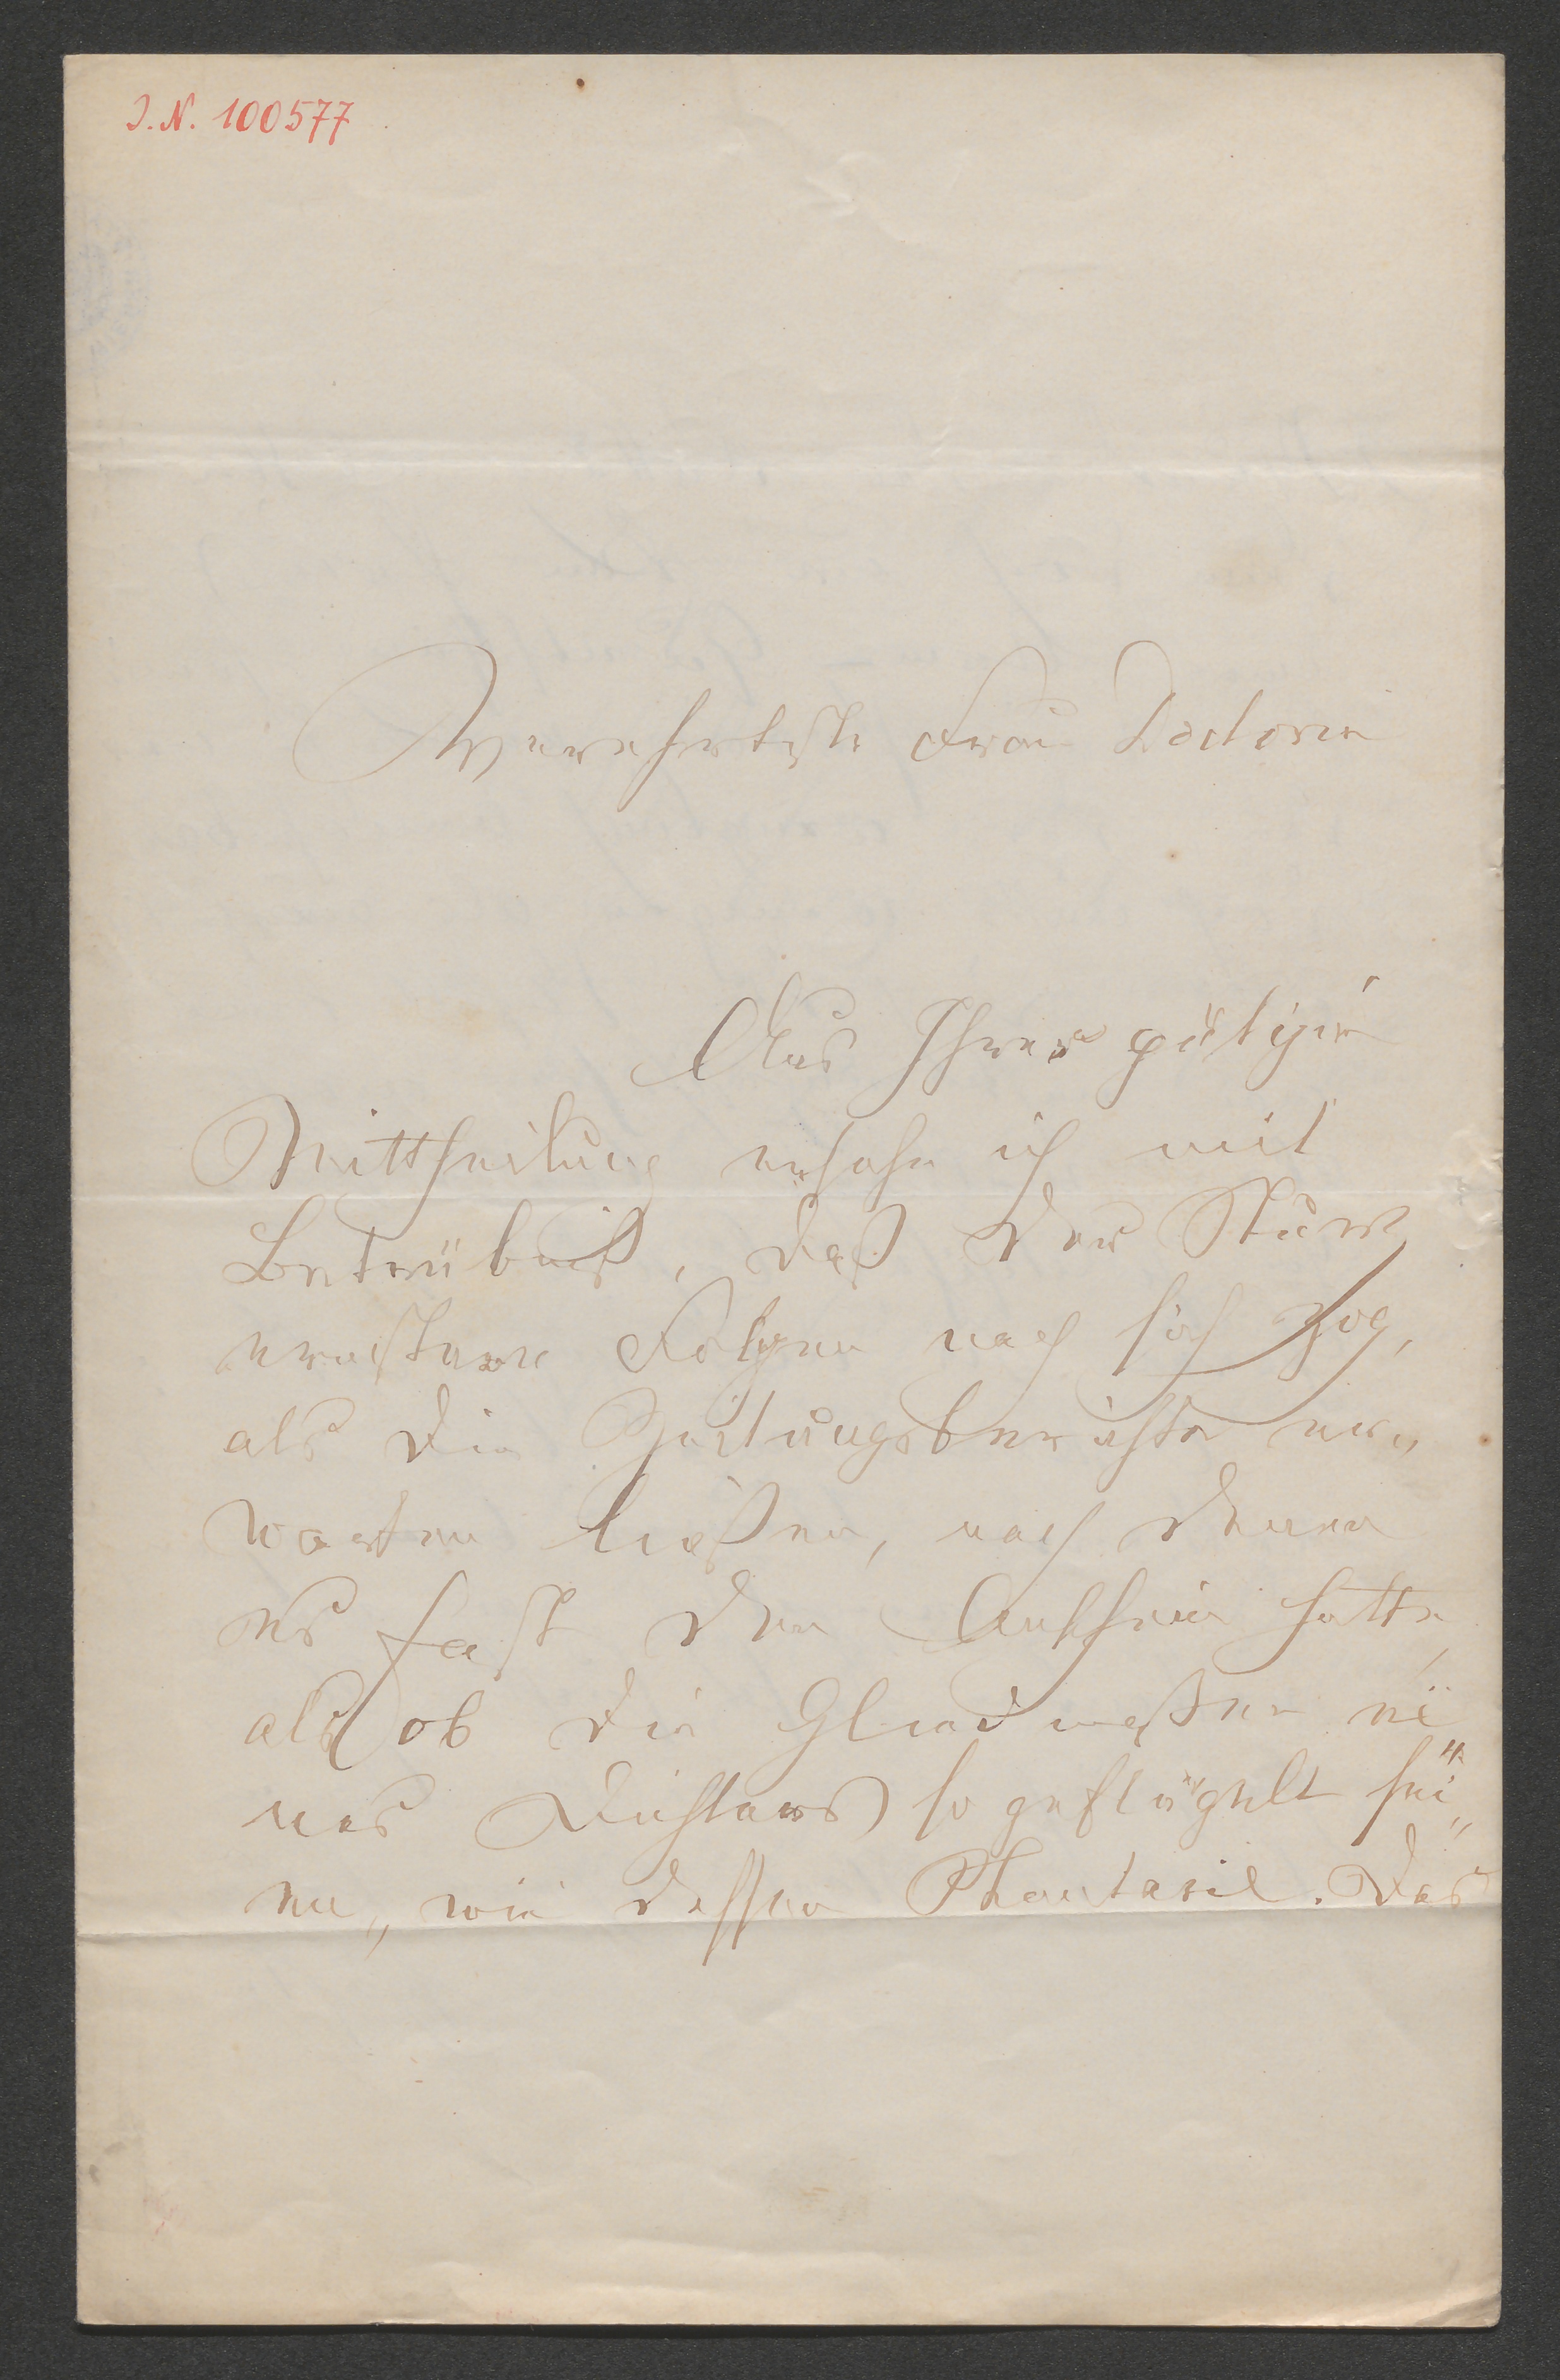 I. N. 100577
Verehrteste Frau Doctorin
Aus Ihrer gütigen
Mittheilung ersehe ich mit
Betrübniß, daß der Sturz
ernstere Folgen nach sich zog,
als die Zeitungsberichte er„
warten ließen, nach denen
es fast den Anschein hatte,
als ob die Gliedmaßen ei„
nes Dichters so geflügelt sei„
en, wie dessen Phantasie. Das